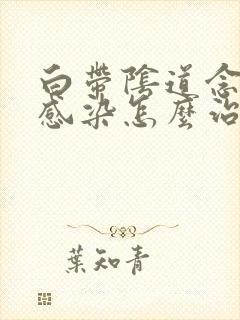 白带阴道念
感染怎麼治
葉知青